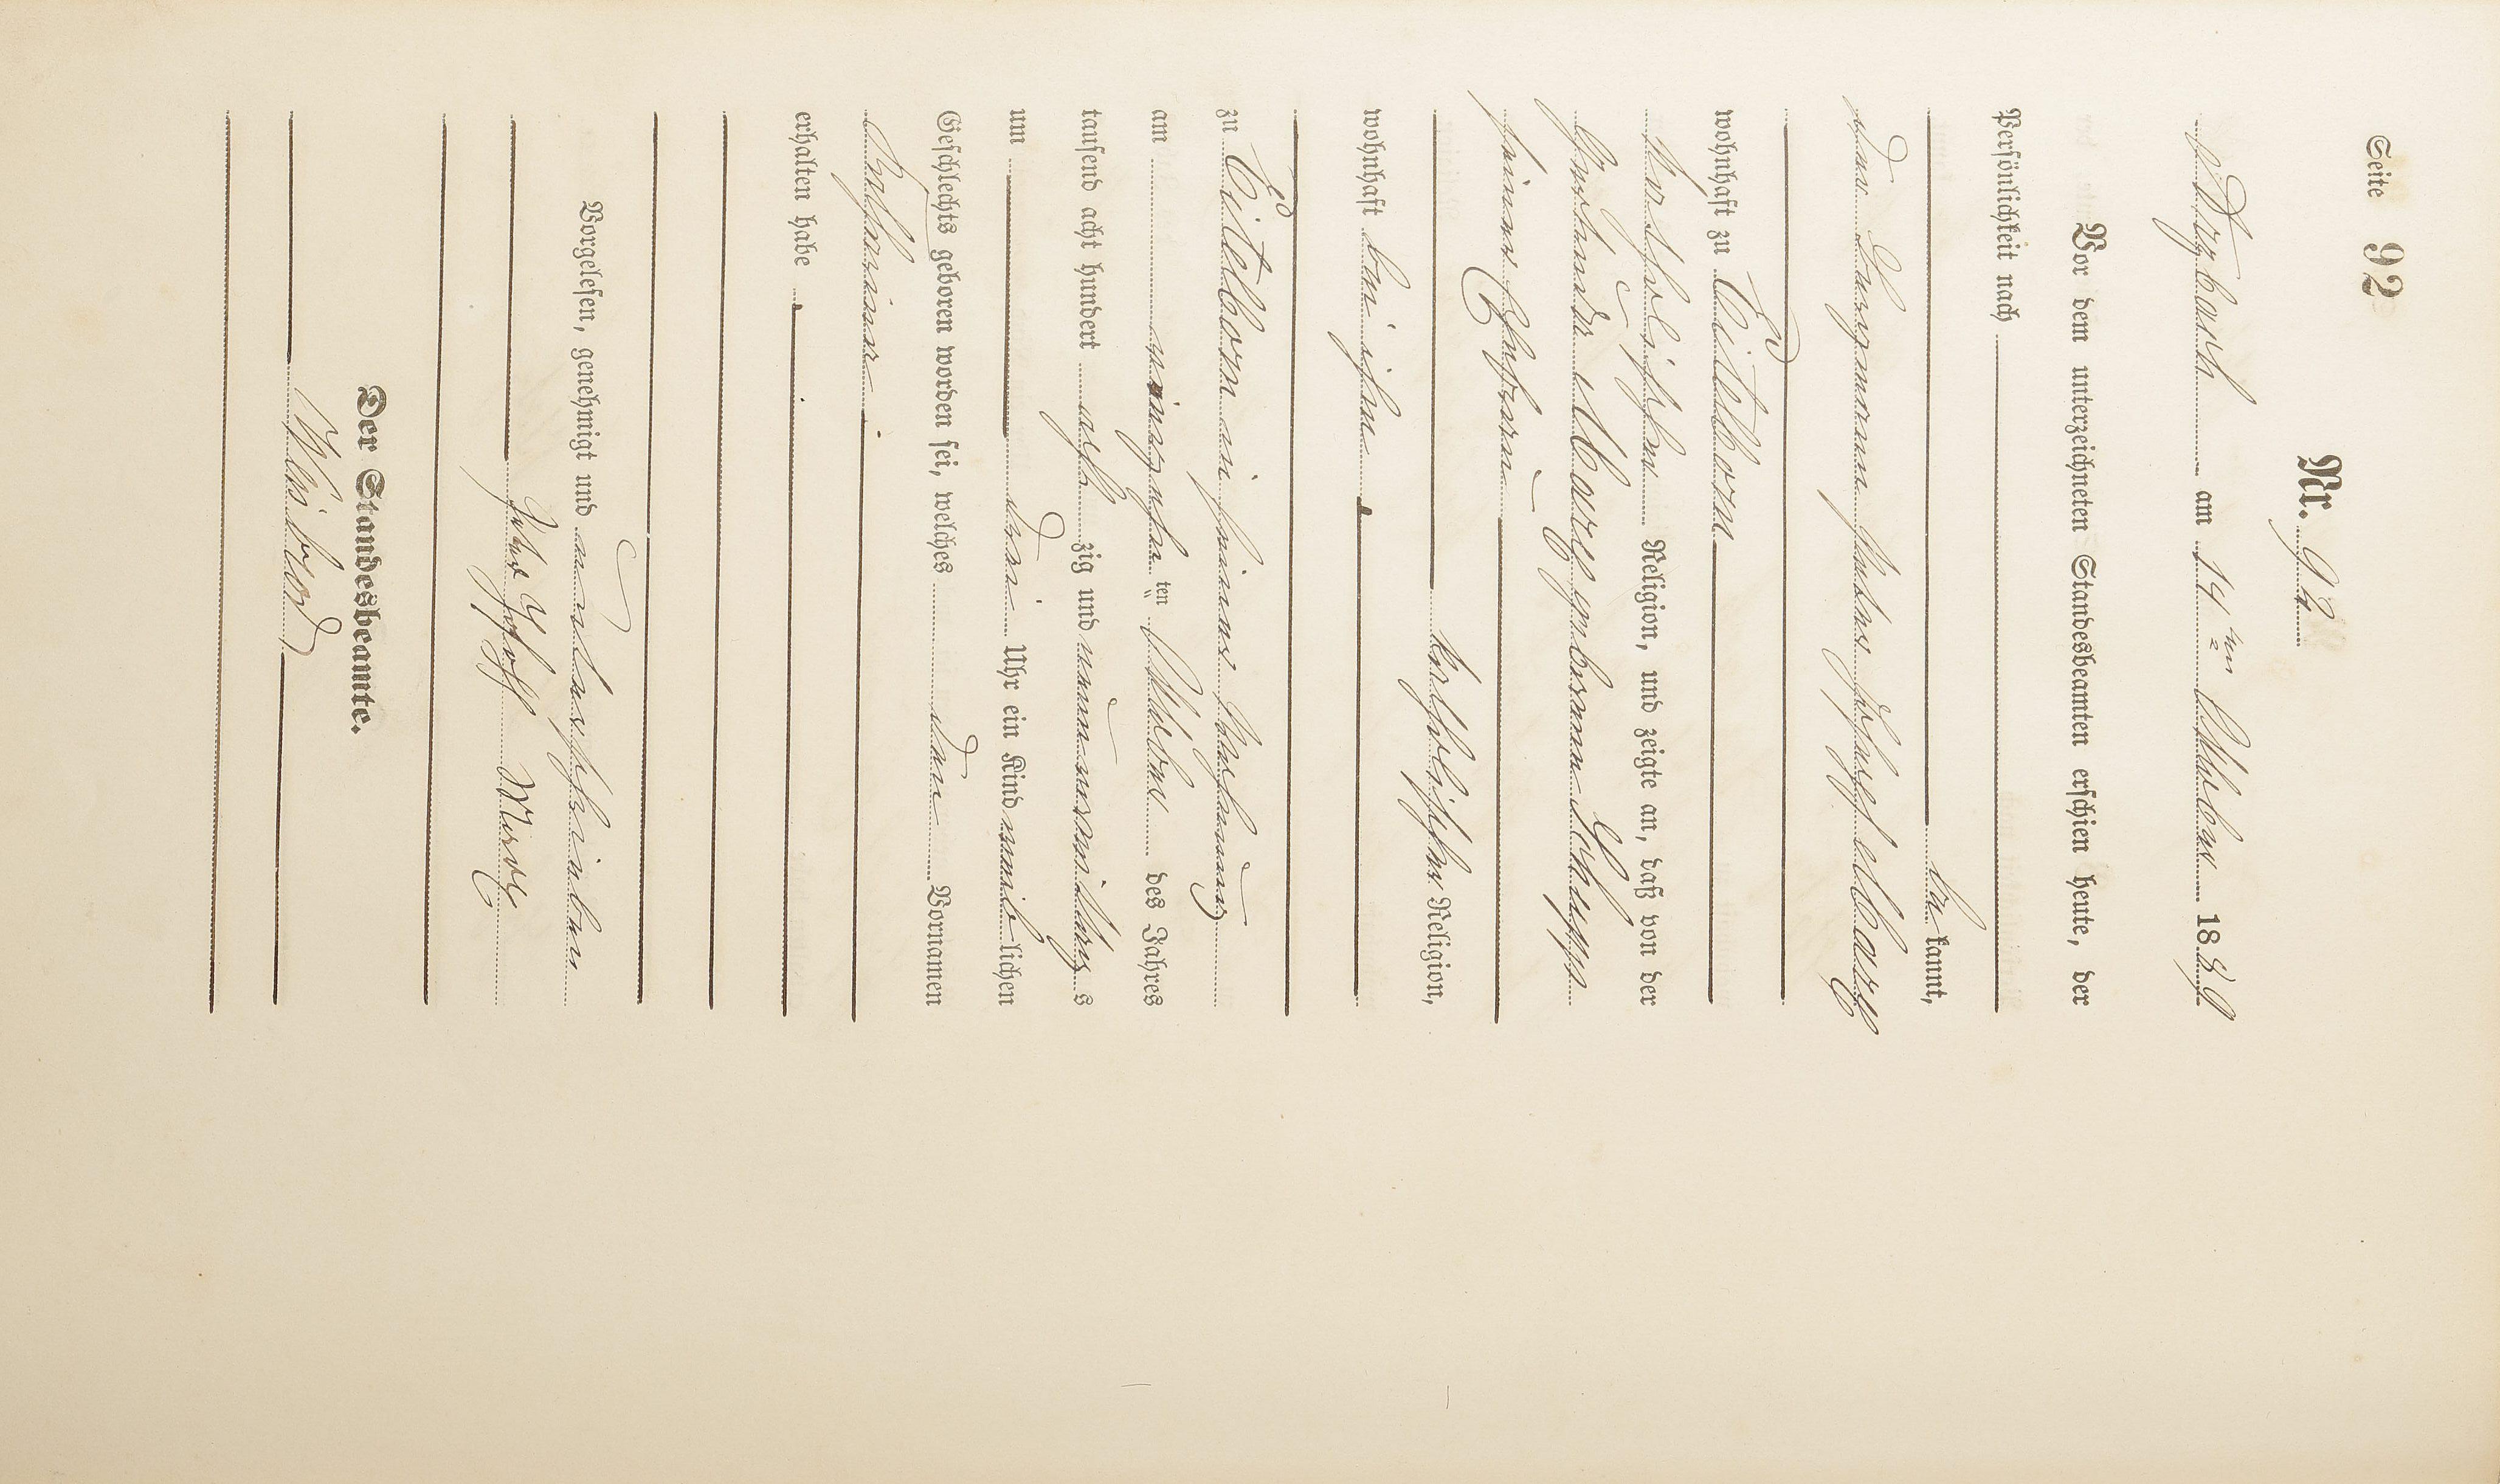 Seite 92
Nr. 92
Arzbach am 14ten October 1889
Vor dem unterzeichneten Standesbeamten erschien heute, der
Persönlichkeit nach
be kannt,
der Bergmann Peter Josef Marx
wohnhaft zu Eitelborn
katholischer Religion, und zeigte an, daß von der
Gertrude Marx geborenen Schupp
seiner Ehefrau
katholischer Religion,
wohnhaft bei ihm
zu Eitelborn in seiner Behausung
am neunzehnten October des Jahres
tausend acht hundert acht zig und neun Vormittags
um drei Uhr ein Kind weib lichen
Geschlechts geboren worden sei, welches den Vornamen
Katharina
erhalten habe.
Vorgelesen, genehmigt und unterschrieben
Peter Josef Marx
Der Standesbeamte.